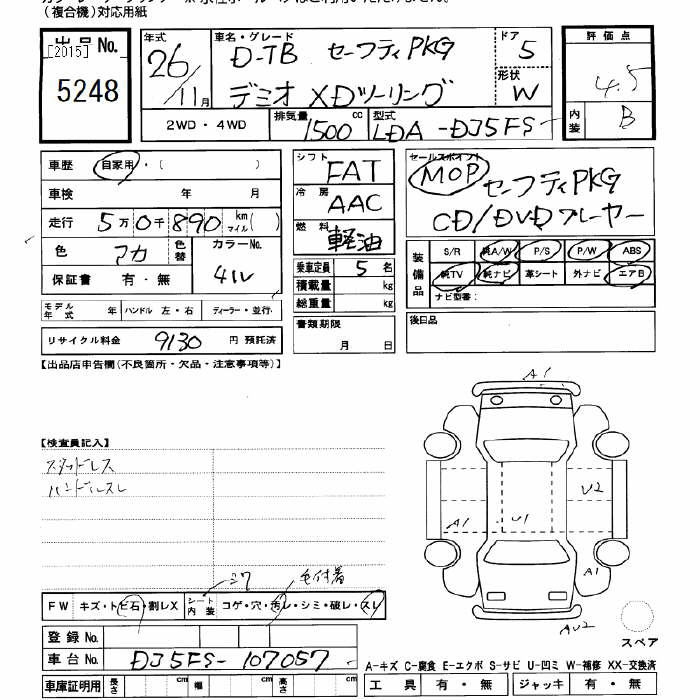 (複合機)対応用紙
出品No.
[2015]
5248
年式 26/11月
車名・グレード D-TB セーフティPKG
デミオ XDツーリング
ドア 5
形状 W
2WD・4WD
排気量 1500 cc
型式 LDA-DJ5FS
評価点 4.5
内装 B
車歴 自家用・( )
車検 年 月
走行 5万0千890 km マイル( )
色 アカ 色替
カラーNo. 41V
保証書 有・無
モデル年式 年 ハンドル 左・右 ディーラー・並行
リサイクル料金 9130円 預託済
シフト FAT
冷房 AAC
燃料 軽油
乗車定員 5名
積載量 kg
総重量 kg
書類期限
月 日
セールスポイント
MOP セーフティPKG
CD/DVDプレーヤー
装備品
S/R 純A/W P/S P/W ABS
純TV 純ナビ 革シート 外ナビ エアB
ナビ型番:
後日品
【出品店申告欄(不良箇所・欠品・注意事項等)】
【検査員記入】
スタッドレス
ハンドルスレ
A1
U2
A1
U1
A1
AU2
スペア
シワ
毛付着
FW キズ・トビ石・割レX
シート内装 コゲ・穴・汚レ・シミ・破レ・スレ
登録No.
車台No. DJ5FS-107057
車庫証明用 長さ cm 幅 cm 高さ cm
A-キズ C-腐食 E-エクボ S-サビ U-凹ミ W-補修 XX-交換済
工具 有・無 ジャッキ 有・無